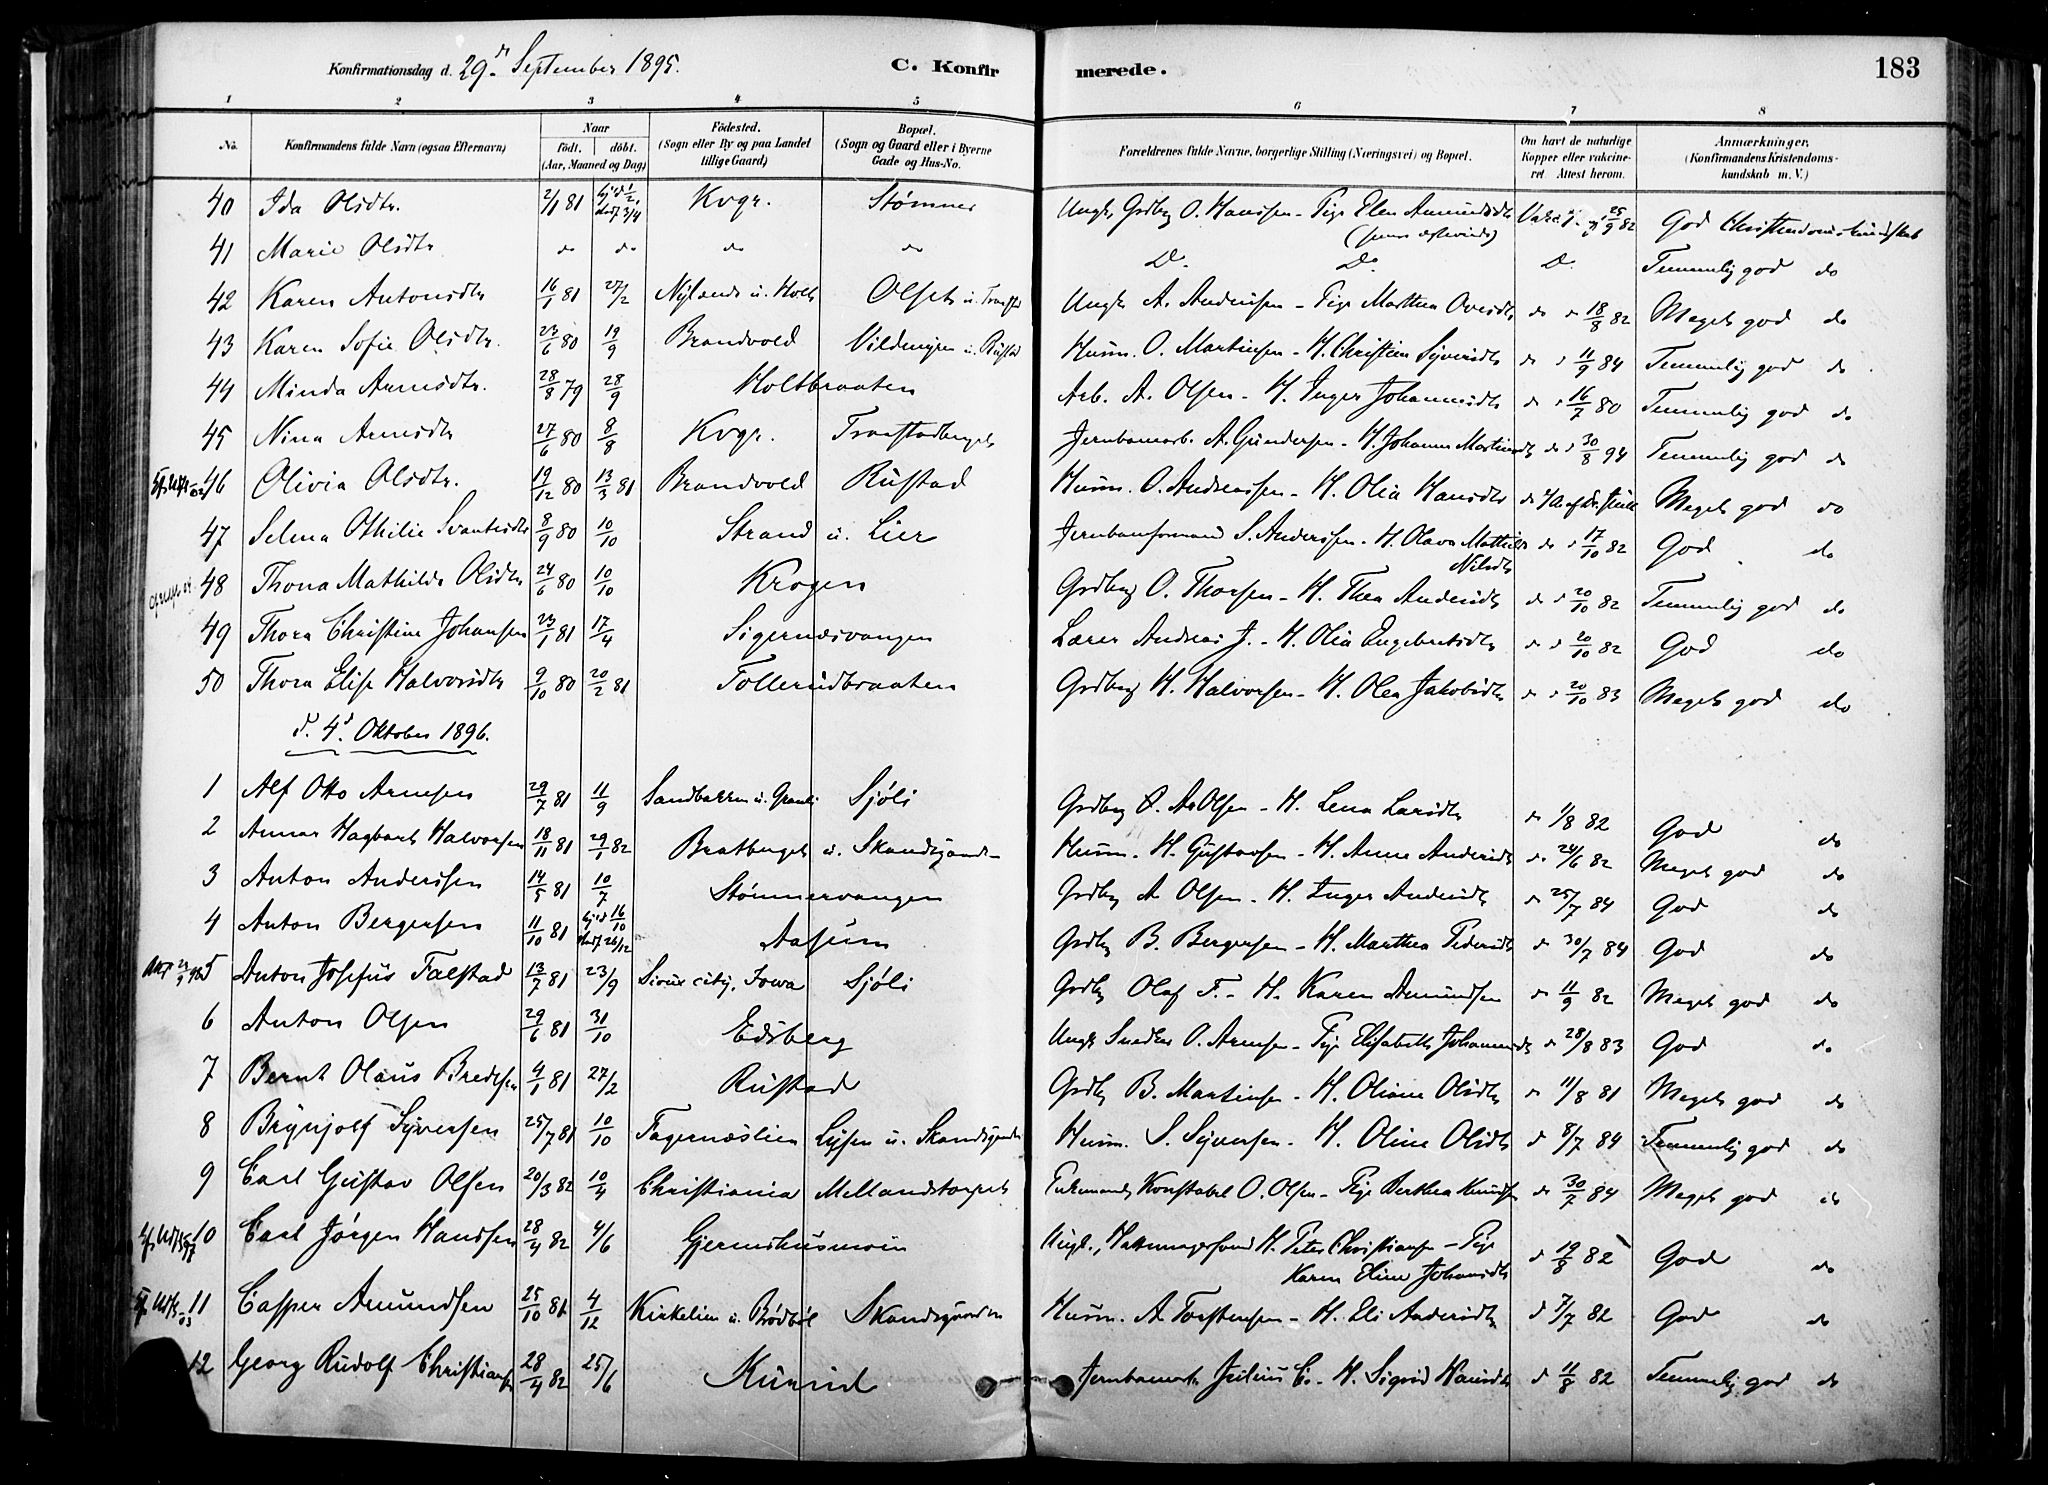 Konfirmationsdag d. 29d September 1895. C. Konfirmerede. 183
1 2 3 4 5 6 7 8
No. Konfirmandens fulde Navn (ogsaa Efternavn) Naar født. døbt. (Aar, Maaned og Dag) Fødested. (Sogn eller By og paa Landet tillige Gaard) Bopæl. (Sogn og Gaard eller i Byerne Gade og Hus-No. Forældrenes fulde Navne, borgerlige Stilling (Næringsvei) og Bopæl. Om havt de naturlige Kopper eller vakcineret. Attest herom. Anmærkninger. (Konfirmandens Kristendomskundskab m. V.)
40 Ida Olsdtr. 2/1 81 3/4 Kvgr. Stømner Ungk. Grdbrg O. Hanssen - Pige Elen Amundsdtr 25/9 82 God Christendomskundskab
41 Marie Olsdtr do do do do Do. Do. Do. Temmelig god do
42 Karen Antonsdtr 16/1 81 27/2 Nylands u. Holt Olset u. Ungk A. Andersen - Pige Marthea Ovesdtr do 18/8 82 Meget god do
43 Karen Sofie Olsdtr. 23/6 80 19/9 Brandvold Vildmyren u. Rustad Husm. O. Martinsen - H. Christien Syversdtr do 11/9 84 Temmelig god do
44 Minda Arnesdtr. 28/8 79 28/9 Holtbraaten Arb. A. Olsen - H. Inger Johannesdtr do 16/7 80 Temmelig god do
45 Nina Arnesdtr 27/6 80 8/8 Kvgr. Traastadberget Jernbanearb. A. Gundersen - H. Johanne Martinsdtr do 30/8 94 Temmelig god do
46 Olivia Olsdtr. 19/12 80 13/3 81 Brandvold Rustad Husm. O. Andreassen - H. Olia Hansdtr do Meget god do
47 Selma Othilie Svantesdtr 8/9 80 10/10 Strand u. Lier Jernbaneformand S. Anderssen - H. Olava Mathilde Nilsdtr do 17/10 82 God do
48 Thona Mathilde Olsdtr 24/6 80 10/10 Krogen Grdbrg O. Thorsen - H. Thea Andersdtr do 20/10 82 Temmelig god do
49 Thora Christine Johansen 23/1 81 17/4 Sigernæsvangen Lærer Andreas J. - H. Olia Engebretsdtr do 20/10 82 God do
50 Thora Elise Halvorsdtr 9/10 80 20/2 81 Tollerudbraaten Grdbrg H. Halvorsen - H. Olea Jakobsdtr do 20/10 83 Meget god do
d. 4d Oktober 1896.
1 Alf Otto Arnesen 29/7 81 11/9 Sandbakken u. Sjøli Grdbrg A. Olsen - H. Lena Larsdtr do 1/8 82 God do
2 Annar Hagbart Halvorsen 18/11 81 29/1 82 Bratberget u. Skandsgaarden Husm. H. Gustavsen - H. Anne Andersdtr do 24/6 82 Meget god do
3 Anton Anderssen 14/5 81 10/7 Stømnervangen Grdbrg A Olsen - H. Inger Andersdtr do 25/7 84 God do
4 Anton Bergersen 11/10 81 16/10 26/12 Aasum Grdbrg B. Bergersen - H. Marthea Pedersdtr do 30/7 84 God do
5 Anton Josefus Falstad 13/7 81 23/9 Sioux city, Iowa Sjøli Grdbrg Olaf F. - H. Karen Amundsen do 11/9 82 Meget god do
6 Anton Olsen 29/6 81 31/10 Edsberg Ungk Snedker O. Arnesen - Pige Elisabeth Johannesdtr do 28/8 83 God do
7 Bernt Olaus Bredesen 4/1 81 27/2 Rustad Grdbrg B. Martinsen - H. Oliane Olsdtr do 11/8 81 Meget god do
8 Brynjolf Syversen 25/7 81 10/10 Fagernæslien Lysen u. Skandsgaarden Husm. S. Syversen - H. Oline Olsdtr do 8/7 84 Temmelig god do
9 Carl Gustav Olsen 20/3 82 10/4 Christiania Mellandstorpet Konstabel O. Olsen - Pige Berthea Knudsen do 30/7 84 Meget god do
10 Carl Jørgen Hansen 28/4 82 4/6 Gjermshusmoin Ungk. H. Peter Christiansen - Pige Karen Eline Johansdtr do 19/8 82 God do
11 Casper Amundsen 25/10 81 4/12 Kirkelien u. Brødbøl Skandsgaarden Husm. A. Torstensen - H. Eli Andersdtr do 7/7 82 God do
12 Georg Rudolf Christiansen 28/4 82 25/6 Kurud Jernbanearb. Julius C. - H. Sigrid Hansdtr do 11/8 82 Temmelig god do